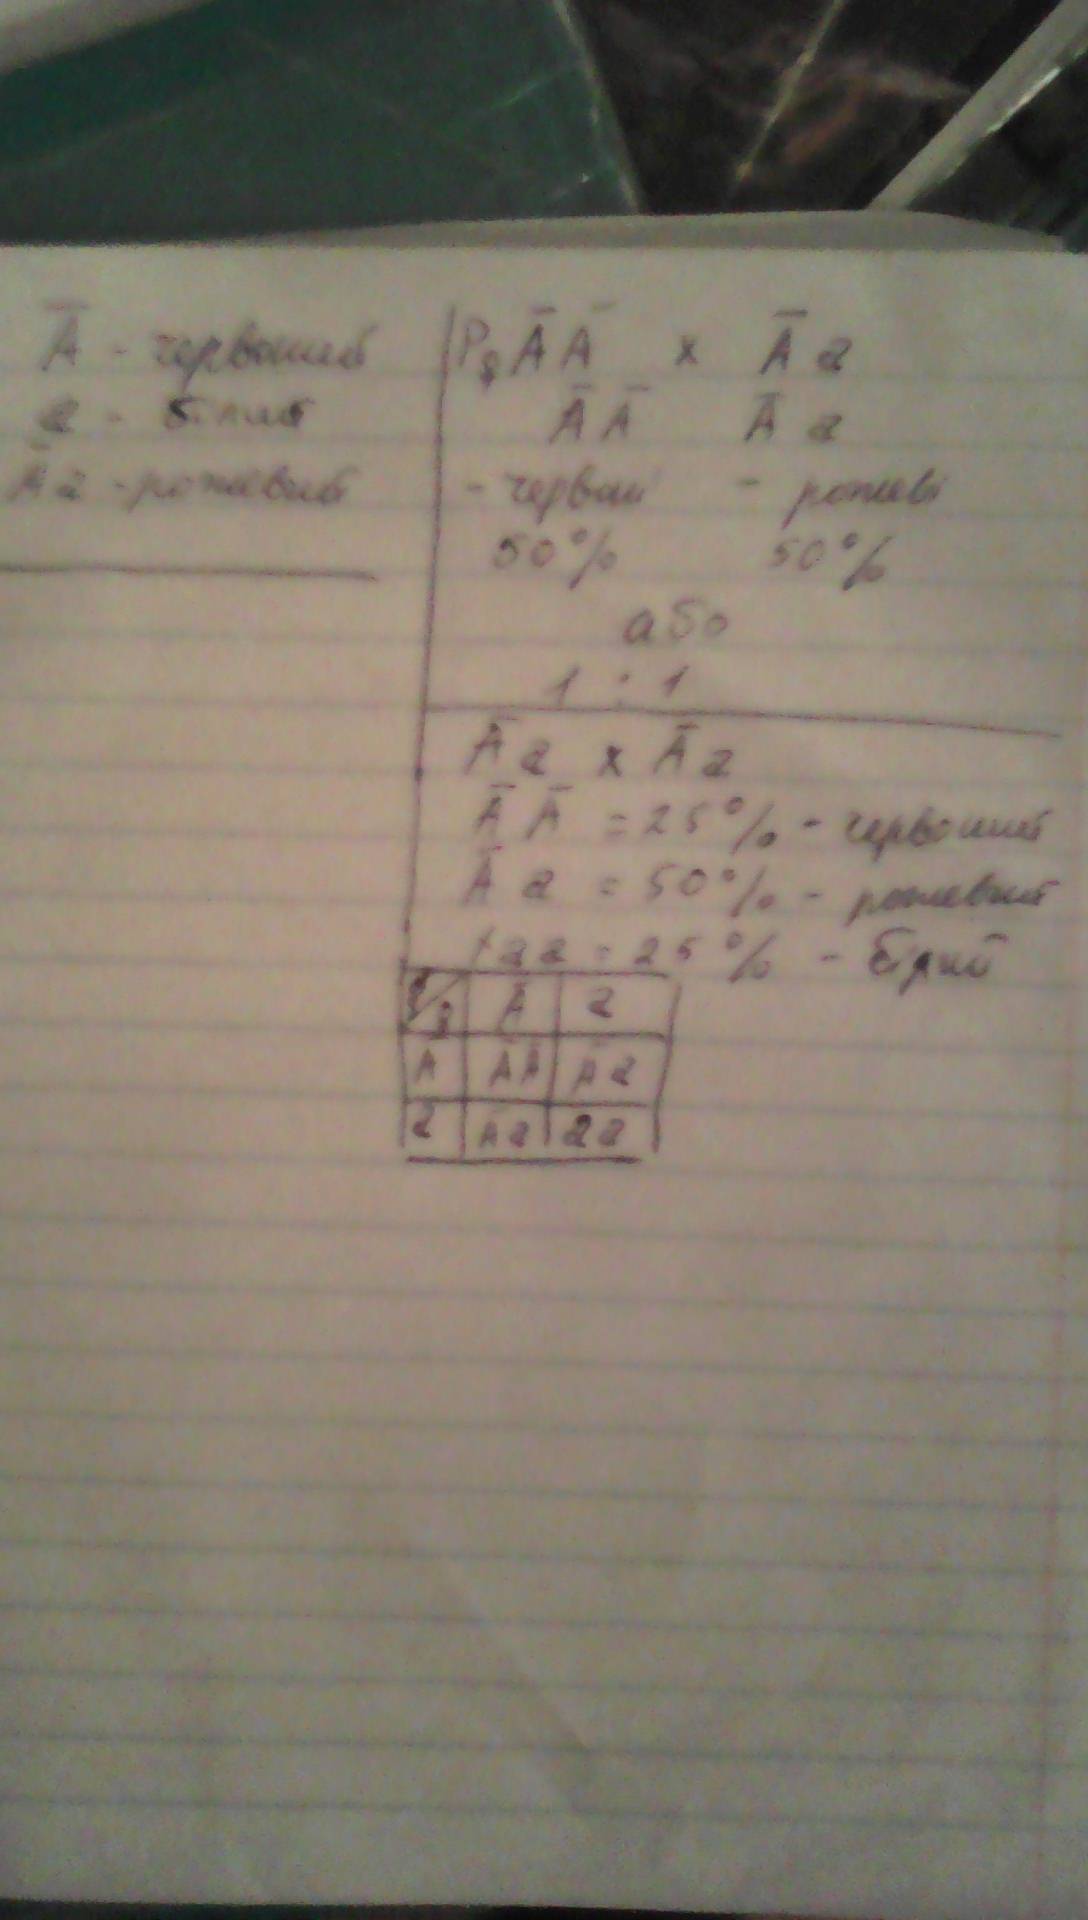 Ā - червоний
a - білий
Āa - рожевий
P♀ ĀĀ x Āa
ĀĀ Āa
- червоні - рожеві
50% 50%
або
1 : 1
Āa x Āa
ĀĀ = 25% - червоний
Āa = 50% - рожевий
aa = 25% - білий
Ā a
A ĀĀ Āa
a Āa aa